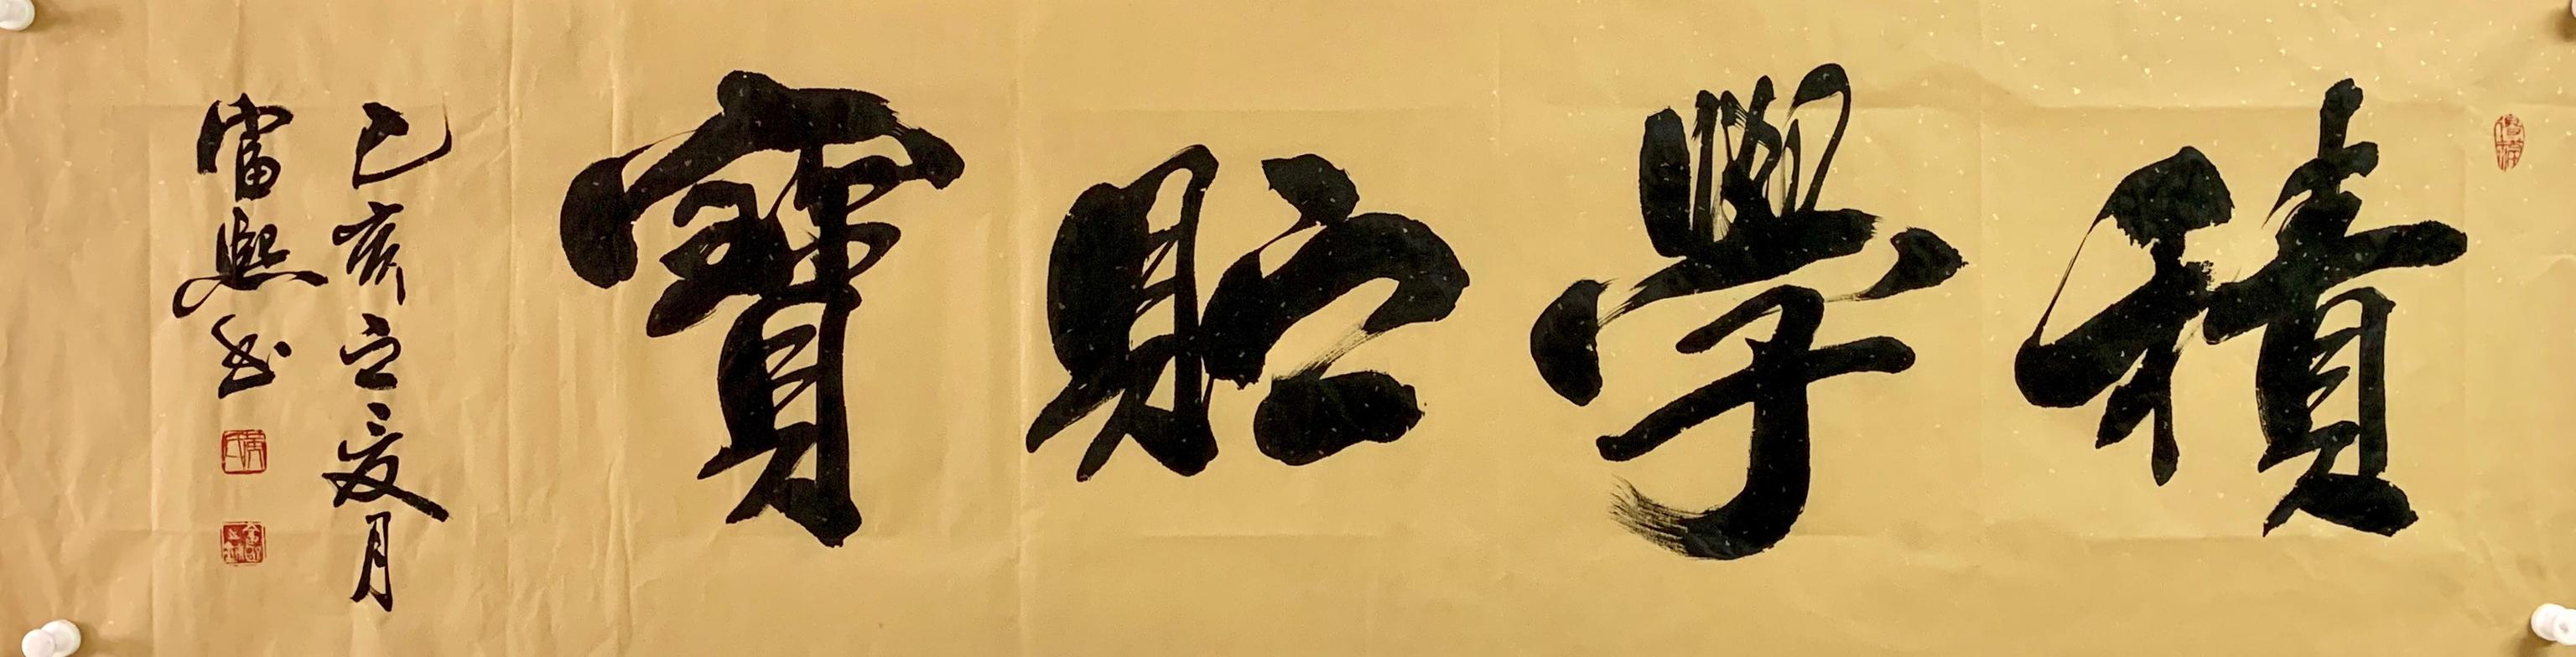 積學貯寶
己亥之夏月
富熙書